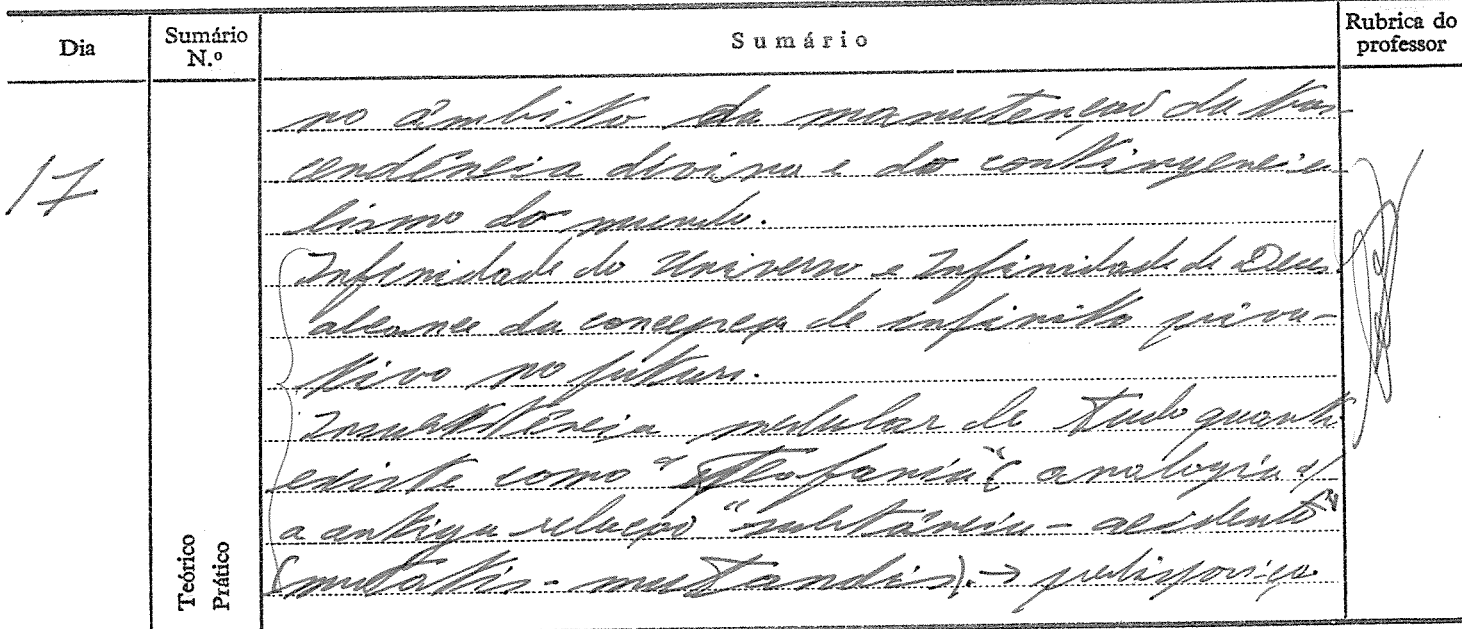 Dia
Sumário N.º
Sumário
Rubrica do professor
17
no âmbito da manutenção da trans-
cendência divina e do contingencia-
lismo do mundo.
Infinidade do Universo e Infinidade de Deus
alcance da concepção de infinito priva-
tivo no futuro.
Insubsistência medular de tudo quanto
existe como "Teofania" (analogia c/
a antiga relação "substância - acidente"
(mutatis - mutandis). →
Teórico
Prático